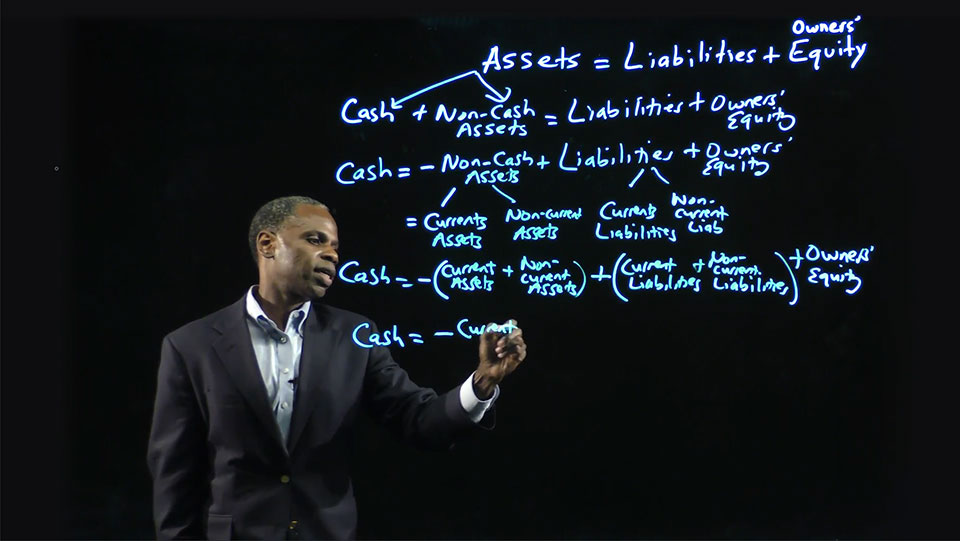 Owners'
Assets = Liabilities + Equity
Cash + Non-Cash = Liabilities + Owners'
Assets Equity
Cash = - Non-Cash + Liabilities + Owners'
Assets Equity
= Currents Non-current Currents Non-current
Assets Assets Liabilities Liab
Cash = - (Current + Non-current) + (Current + Non-current) + Owners'
Assets Assets Liabilities Liabilities Equity
Cash = - Current